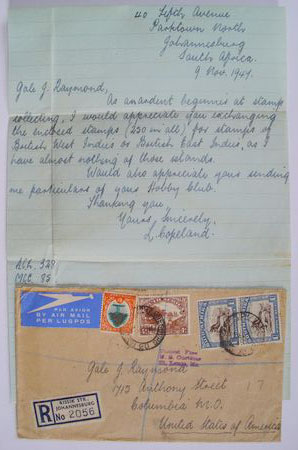 40 Fifth Avenue
Parktown North
Johannesburg
South Africa.
9 Nov. 1951.
Gale J. Raymond,
As an ardent beginner at stamp
collecting, I would appreciate you exchanging
the enclosed stamps (230 in all) for stamps of
British West Indies or British East Indies, as I
have almost nothing of those islands.
Would also appreciate your sending
me particulars of your Hobby Club.
Thanking you,
Yours Sincerely,
L. Copeland.
PER AVION
BY AIR MAIL
PER LUGPOS
Gale J. Raymond
1713 Anthony Street
Columbia M.O.
United States of America
17
R
KISSIK STR.
JOHANNESBURG
No 2056